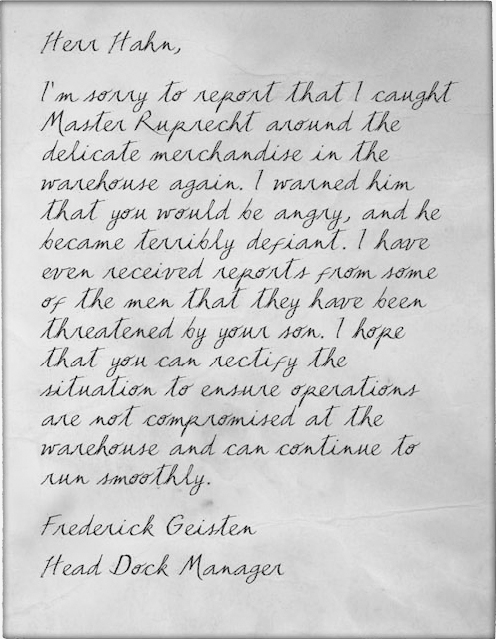 Herr Hahn,
I'm sorry to report that I caught
Master Ruprecht around the
delicate merchandise in the
warehouse again. I warned him
that you would be angry, and he
became terribly defiant. I have
even received reports from some
of the men that they have been
threatened by your son. I hope
that you can rectify the
situation to ensure operations
are not compromised at the
warehouse and can continue to
run smoothly.
Frederick Geisten
Head Dock Manager